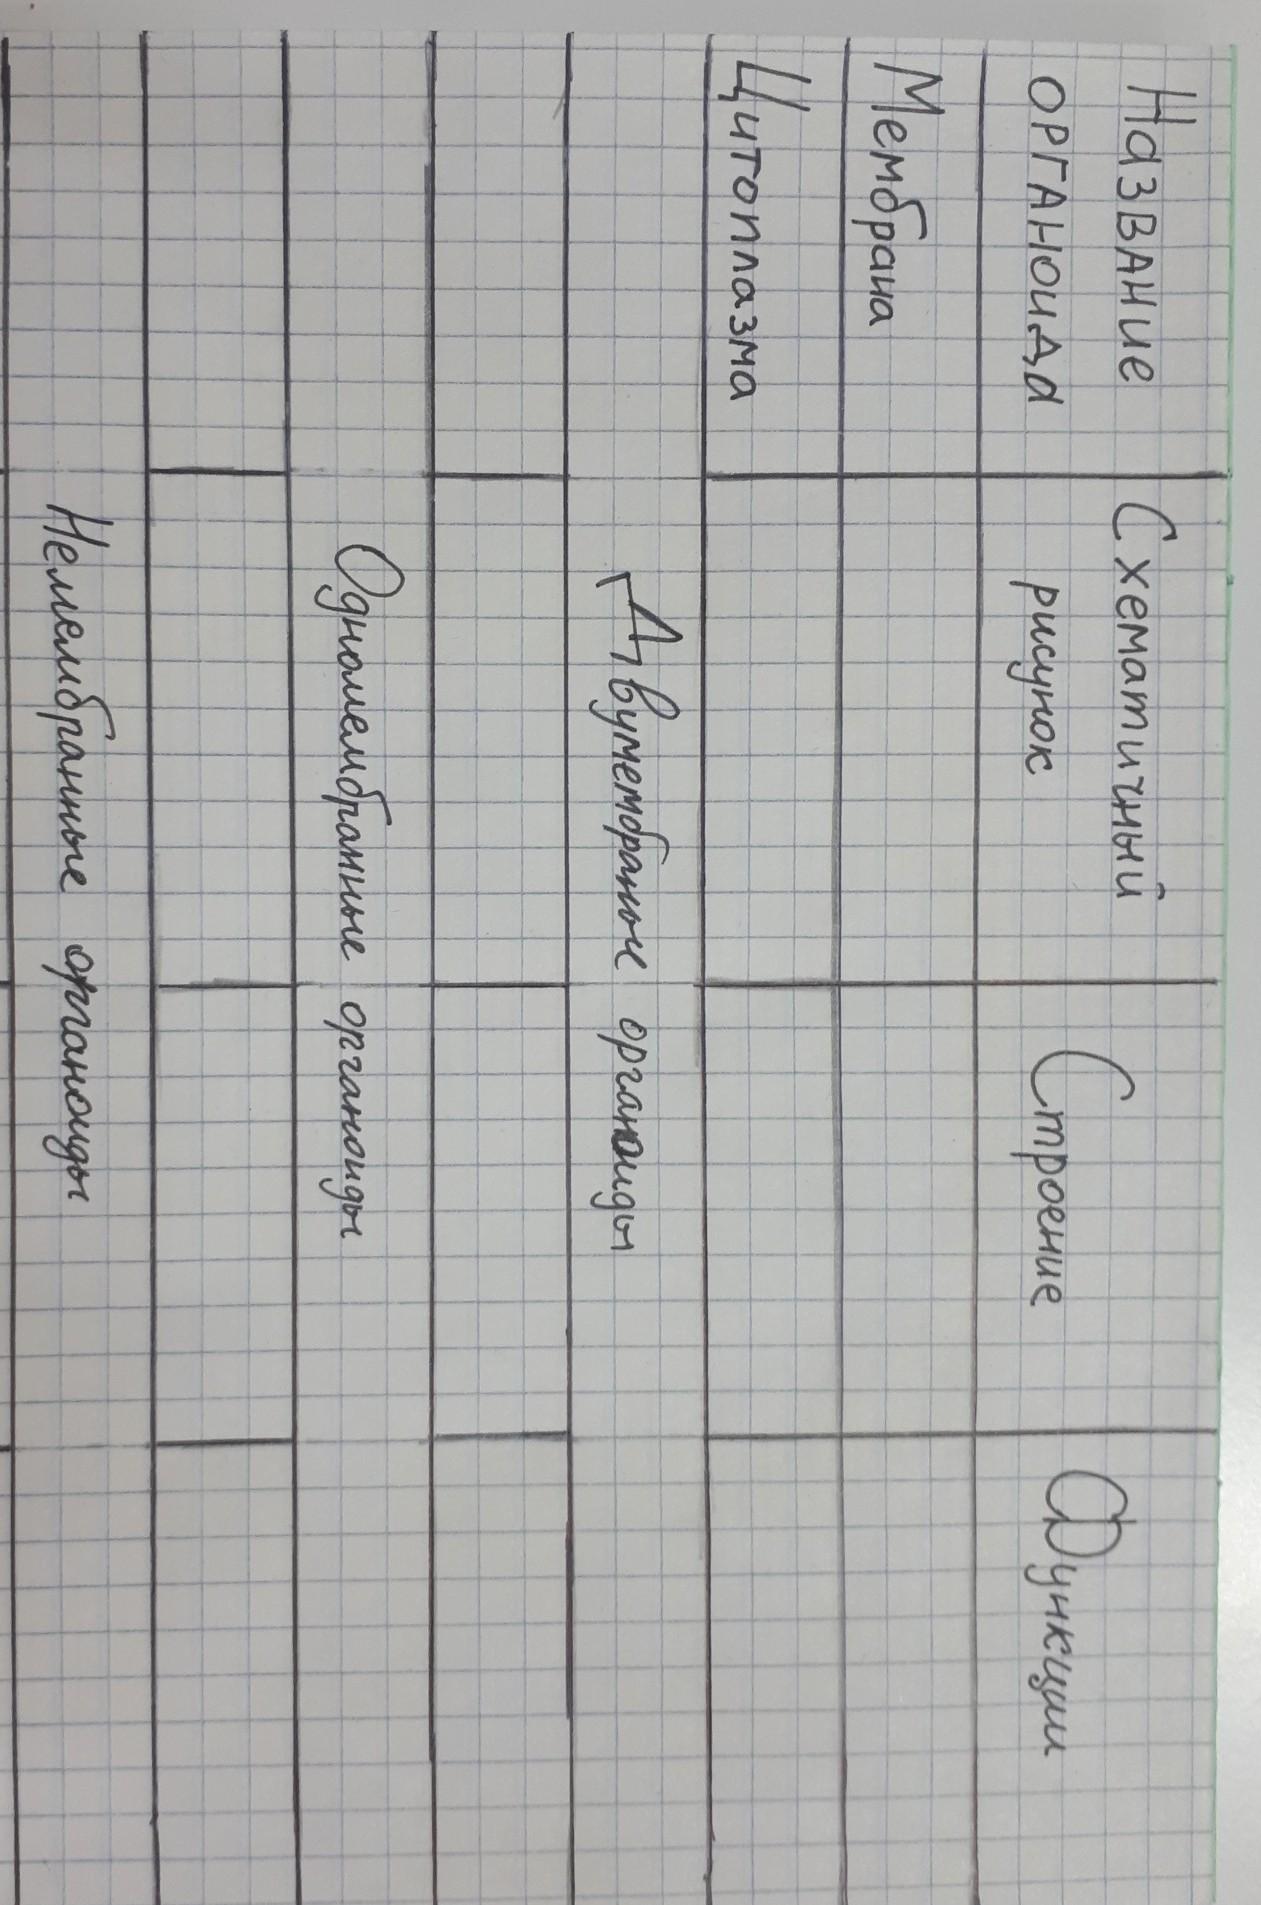 Название
органоида
Схематичный
рисунок
Строение
Функции
Мембрана
Цитоплазма
Двумембраные органоиды
Одномембранные органоиды
Немембранные органоиды